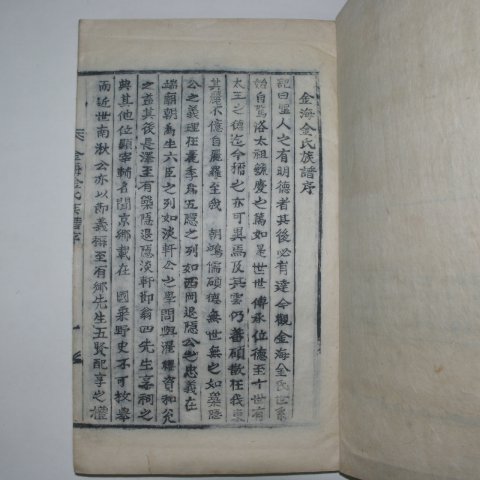 金海金氏族譜序
記曰聖人之有明德者其後必有達今觀金海金氏世系
始自駕洛太祖毓慶之萬如是世世傳承位德至十世有
太王之德迄今稱之亦可異焉及其雲仍蕃碩散在我東
其麗不億自羅至我 朝鴻儒碩德無世無之如
公之義理在麗季爲五隱之列如西岡退隱公之忠義在
端廟朝爲生六臣之列如淡軒公之學問與濯纓資和允
之益其後是澤至有築隱退隱淡軒節翁四先生
與其他位顯宰輔名聞京鄉載在 國乘野史不可枚擧
而近世南湫公亦以節義 至有鄉先生五賢配享之禮
金海金氏族譜序